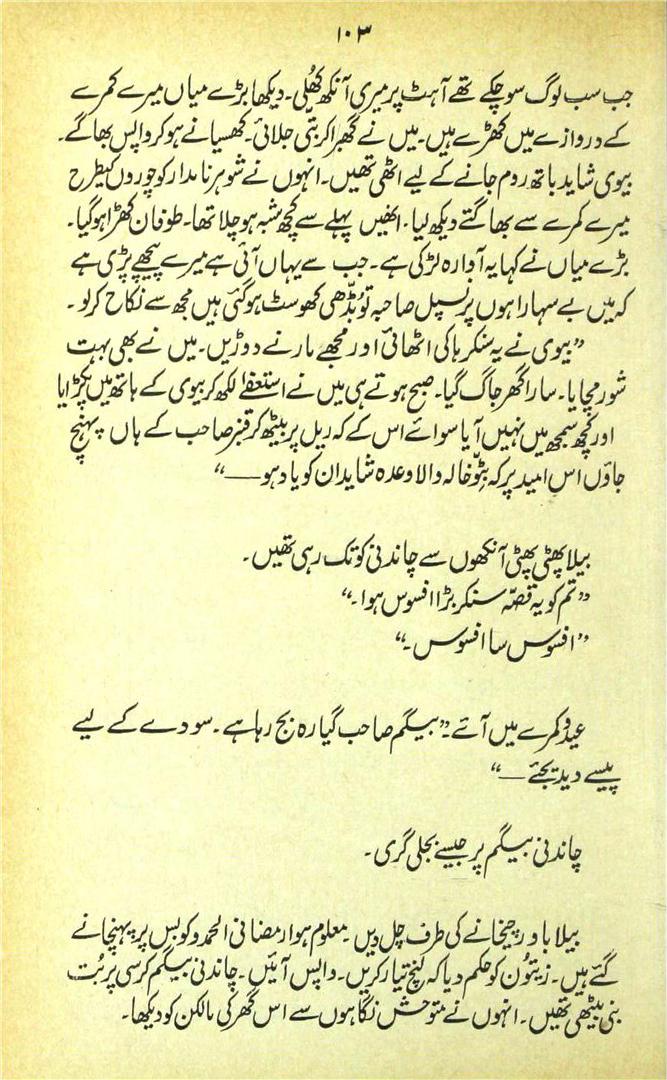 ۱۰۳
جب سب لوگ سو چکے تھے آہٹ پر میری آنکھ کھُلی۔ دیکھا بڑے میاں میرے کمرے
کے دروازے میں کھڑے ہیں۔ میں نے گھبرا کر بتّی جلائی۔ کھسیانے ہو کر واپس بھاگے۔
بیوی شاید باتھ روم جانے کے لیے اٹھی تھیں۔ انہوں نے شوہر نامدار کو چوروں کیطرح
میرے کمرے سے بھاگتے دیکھ لیا۔ انھیں پہلے سے کچھ شبہ ہو چلا تھا۔ طوفان کھڑا ہو گیا۔
بڑے میاں نے کہا یہ آوارہ لڑکی ہے۔ جب سے یہاں آئی ہے میرے پیچھے پڑی ہے
کہ میں بے سہارا ہوں پرنسپل صاحبہ تو بڈّھی کھوسٹ ہو گئی ہیں مجھ سے نکاح کر لو۔
”بیوی نے یہ سنکر ہاکی اٹھائی اور مجھے مارنے دوڑیں۔ میں نے بھی بہت
شور مچایا۔ سارا گھر جاگ گیا۔ صبح ہوتے ہی میں نے استعفٰے لکھ کر بیوی کے ہاتھ میں پکڑایا
اور کچھ سمجھ میں نہیں آیا سوائے اس کے کہ ریل پر بیٹھ کر قنبر صاحب کے ہاں پہنچ
جاؤں اس امید پر کہ بِٹّو خالہ والا وعدہ شاید ان کو یاد ہو——“
بیلا پھٹی پھٹی آنکھوں سے چاندنی کو تک رہی تھیں۔
”تم کو یہ قصّہ سنکر بڑا افسوس ہوا۔“
”افسوس سا افسوس۔“
عیدو کمرے میں آئے۔ ”بیگم صاحب گیارہ بج رہا ہے۔ سودے کے لیے
پیسے دیدیجئے—“
چاندنی بیگم پر جیسے بجلی گری۔
بیلا باورچیخانے کی طرف چل دیں۔ معلوم ہوا رمضانی الحمدو کو بس پر پہنچانے
گئے ہیں۔ زیتون کو حکم دیا کہ لنچ تیار کریں۔ واپس آئیں۔ چاندنی بیگم کرسی پر بُت
بنی بیٹھی تھیں۔ انہوں نے متوحش نگاہوں سے اس گھر کی مالکن کو دیکھا۔